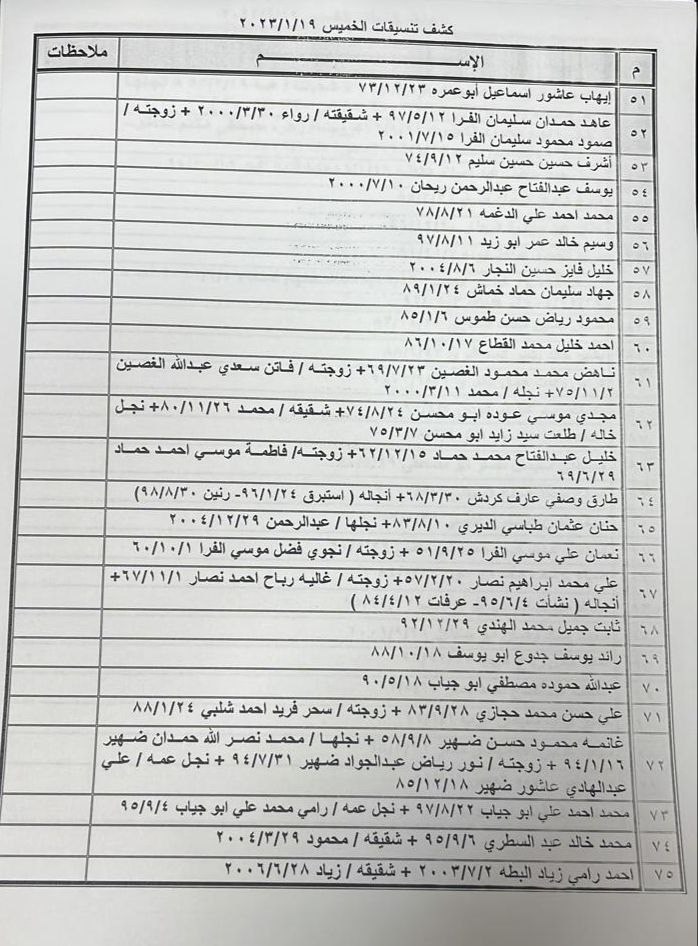 كشف تنسيقات الخميس ٢٠٢٣/١/١٩
م الإســـــم ملاحظات
٥١ إيهاب عاشور اسماعيل أبوعمره ٧٣/١٢/٢٣
٥٢ عاهد حمدان سليمان الفرا ٩٧/٥/١٢ + شقيقته / رواء ٢٠٠٠/٣/٣٠ + زوجته /
صمود محمود سليمان الفرا ٢٠٠١/٧/١٥
٥٣ أشرف حسين حسين سليم ٧٤/٩/١٢
٥٤ يوسف عبدالفتاح عبدالرحمن ريحان ٢٠٠٠/٧/١٠
٥٥ محمد احمد علي الدغمه ٧٨/٨/٢١
٥٦ وسيم خالد عمر ابو زيد ٩٧/٨/١١
٥٧ خليل فايز حسين النجار ٢٠٠٤/٨/٦
٥٨ جهاد سليمان حماد خماش ٨٩/١/٢٤
٥٩ محمود رياض حسن طموس ٨٥/١/٦
٦٠ احمد خليل محمد القطاع ٨٦/١٠/١٧
٦١ ناهض محمد محمود الغصين ٦٩/٧/٢٣+ زوجته / فاتن سعدي عبدالله الغصين
٧٥/١١/٢+ نجله / محمد ٢٠٠٠/٣/١١
٦٢ مجدي موسي عوده ابو محسن ٧٤/٨/٢٤+ شقيقه / محمد ٨٠/١١/٢٦+ نجل
خاله / طلعت سيد زايد ابو محسن ٧٥/٣/٧
٦٣ خليل عبدالفتاح محمد حماد ٦٢/١٢/١٥+ زوجته/ فاطمة موسي احمد حماد
٦٩/٦/٢٩
٦٤ طارق وصفي عارف كردش ٦٨/٣/٣٠+ أنجاله ( استبرق ٩٦/١/٢٤- رنين ٩٨/٨/٣٠)
٦٥ حنان عثمان طباسي الديري ٨٣/٨/١٠+ نجلها / عبدالرحمن ٢٠٠٤/١٢/٢٩
٦٦ نعمان علي موسي الفرا ٥١/٩/٢٥ + زوجته / نجوي فضل موسي الفرا ٦٠/١٠/١
٦٧ علي محمد ابراهيم نصار ٥٧/٢/٢٠+ زوجته / غاليه رباح احمد نصار ٦٧/١١/١+
أنجاله ( نشأت ٩٥/٦/٤- عرفات ٨٤/٤/١٢ )
٦٨ ثابت جميل محمد الهندي ٩٢/١٢/٢٩
٦٩ رائد يوسف جدوع ابو يوسف ٨٨/١٠/١٨
٧٠ عبدالله حموده مصطفي ابو جياب ٩٠/٥/١٨
٧١ علي حسن محمد حجازي ٨٣/٩/٢٨ + زوجته / سحر فريد احمد شلبي ٨٨/١/٢٤
٧٢ غانمه محمود حسن ضهير ٥٨/٩/٨ + نجلها / محمد نصر الله حمدان ضهير
٩٤/١/١٦ + زوجته / نور رياض عبدالجواد ضهير ٩٤/٧/٣١ + نجل عمه / علي
عبدالهادي عاشور ضهير ٨٥/١٢/١٨
٧٣ محمد احمد علي ابو جياب ٩٧/٨/٢٢ + نجل عمه / رامي محمد علي ابو جياب ٩٥/٩/٤
٧٤ محمد خالد عبد السطري ٩٥/٩/٦ + شقيقه / محمود ٢٠٠٤/٣/٢٩
٧٥ احمد رامي زياد البطه ٢٠٠٣/٧/٢ + شقيقه / زياد ٢٠٠٦/٦/٢٨